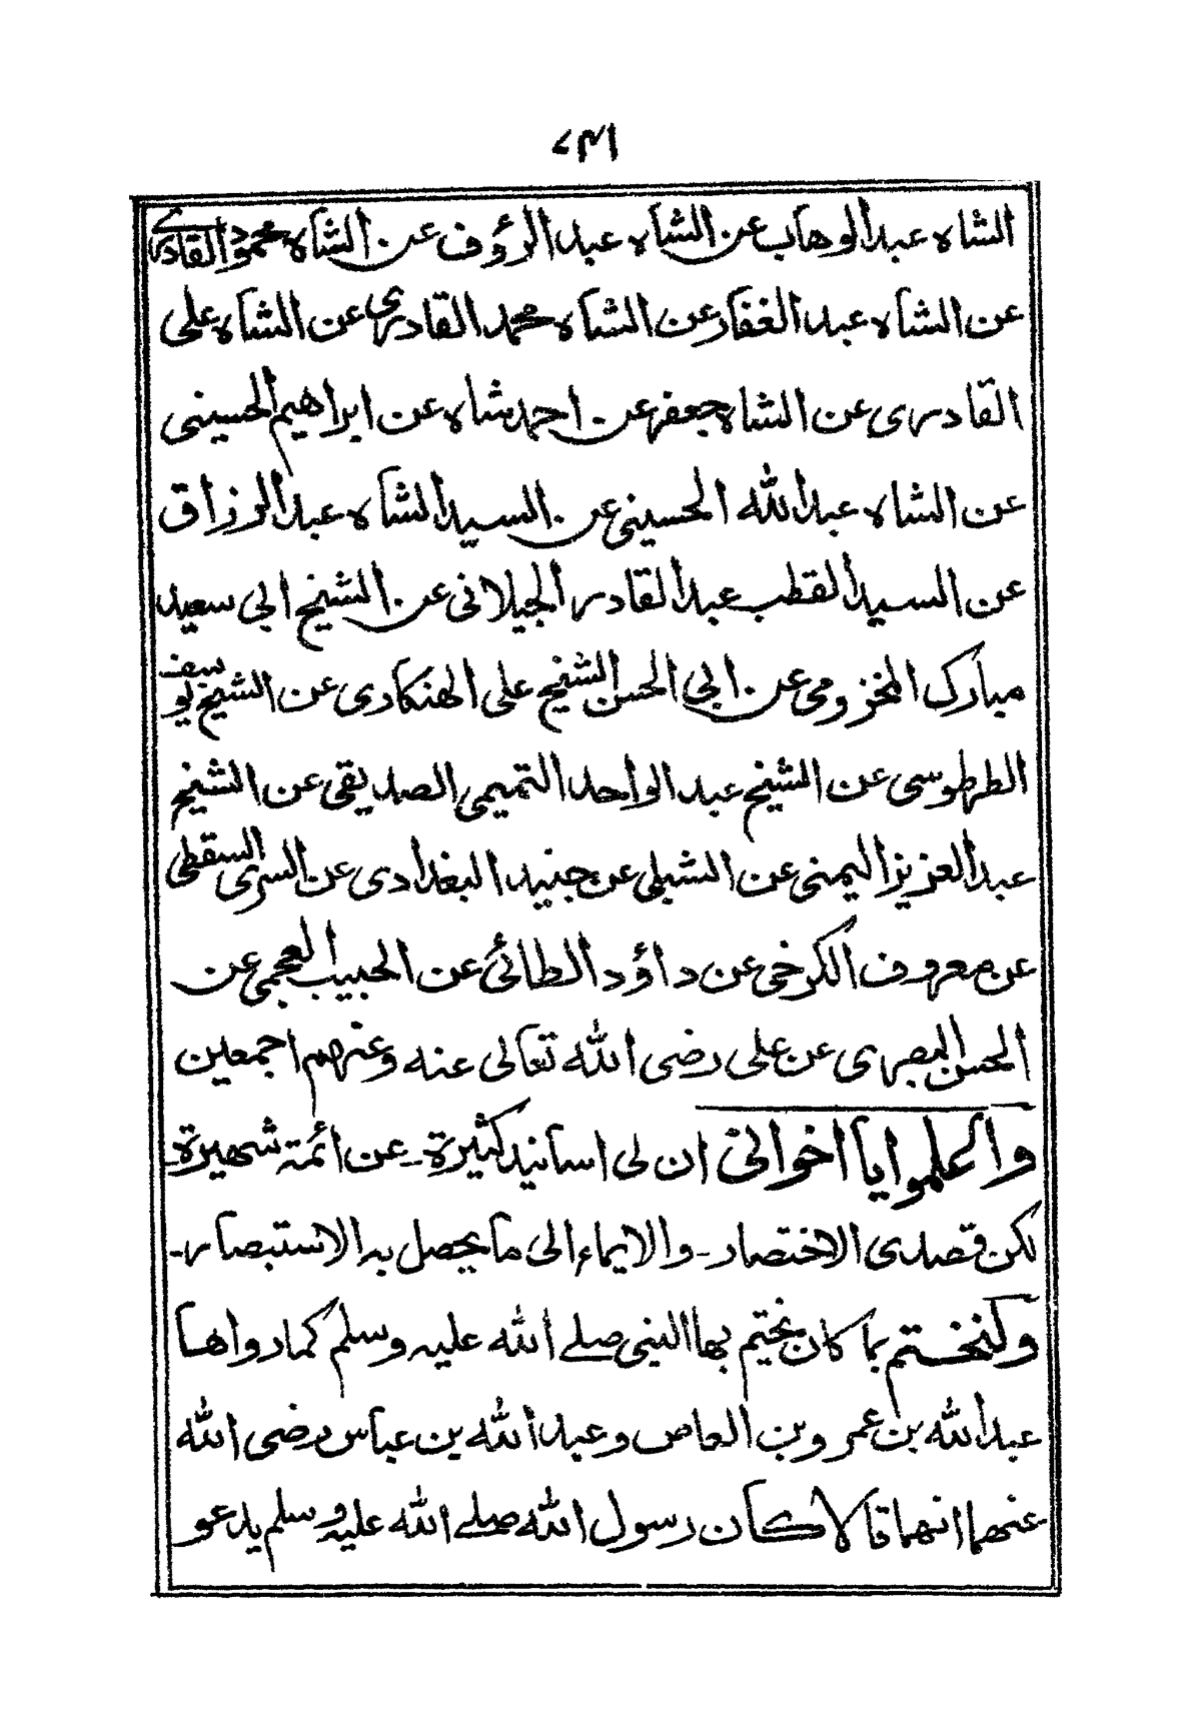 ١٣٧
الشاه عبد الوهاب عن الشاه عبد الرؤف عن الشاه محمود القادرى
عن الشاه عبد الغفار عن الشاه محمد القادرى عن الشاه على
القادرى عن الشاه جعفر عن احمد شاه عن ابراهيم الحسينى
عن الشاه عبد الله الحسينى عن السيد الشاه عبد الرزاق
عن السيد القطب عبد القادر الجيلانى عن الشيخ ابى سعيد
مبارك المخزومى عن ابى الحسن الشيخ على الهنكادى عن الشيخ يوسف
الطرطوسى عن الشيخ عبد الواحد التميمى الصديقى عن الشيخ
عبد العزيز اليمنى عن الشبلى عن جنيد البغدادى عن السرى السقطى
عن معروف الكرخى عن داؤد الطائى عن الحبيب العجمى عن
الحسن البصرى عن على رضى الله تعالى عنه وعنهم اجمعين
واعلموا يا اخوانى ان لى اسانيد كثيرة۔ عن ائمة شهيرة۔
لكن قصدى الاختصار۔ والايماء الى ما يحصل به الاستبصار۔
ولنختم بما كان يختم بها النبى صلے الله عليه وسلم كما رواها
عبد الله بن عمرو بن العاص وعبد الله بن عباس رضى الله
عنهما انهما قالا كان رسول الله صلے الله عليه وسلم يدعو